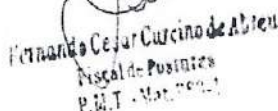 Fernando Cesar Curcino de Abreu
Fiscal de Posturas
P.M.T - Mat.